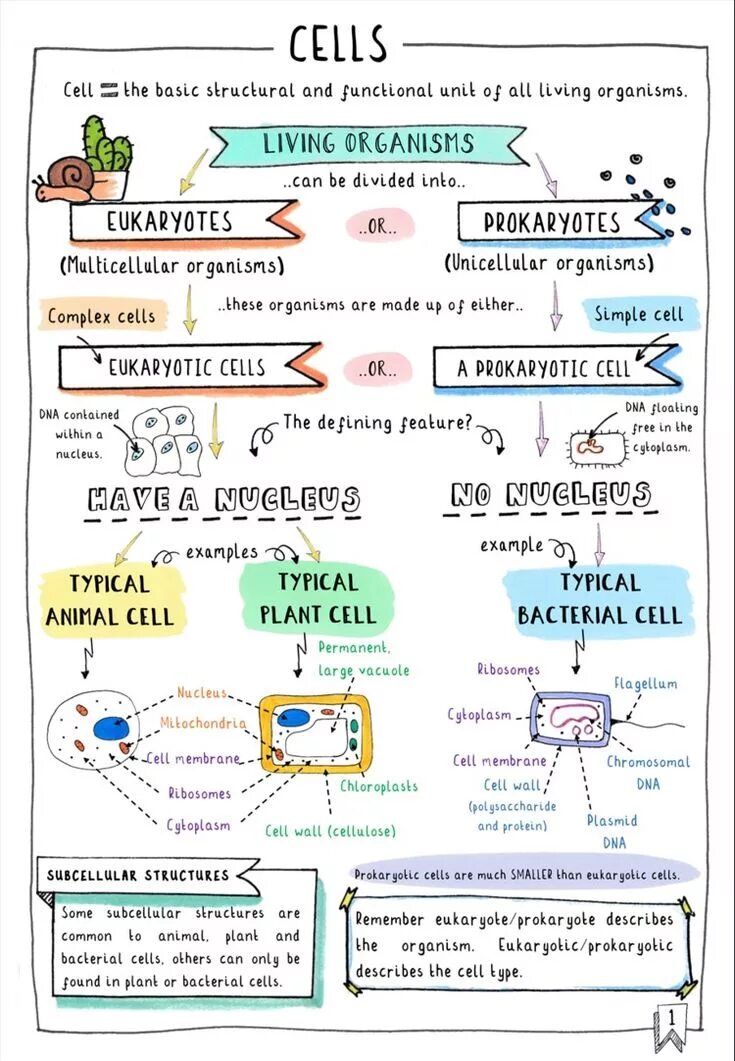 CELLS
Cell = the basic structural and functional unit of all living organisms.
LIVING ORGANISMS
..can be divided into..
EUKARYOTES
..OR..
PROKARYOTES
(Multicellular organisms)
(Unicellular organisms)
Complex cells
..these organisms are made up of either..
Simple cell
EUKARYOTIC CELLS
..OR..
A PROKARYOTIC CELL
DNA contained
within a
nucleus.
The defining feature?
DNA floating
free in the
cytoplasm.
HAVE A NUCLEUS
NO NUCLEUS
examples
example
TYPICAL
ANIMAL CELL
TYPICAL
PLANT CELL
TYPICAL
BACTERIAL CELL
Permanent,
large vacuole
Nucleus
Mitochondria
Cell membrane
Ribosomes
Cytoplasm
Chloroplasts
Cell wall (cellulose)
Ribosomes
Flagellum
Cytoplasm
Cell membrane
Chromosomal
DNA
Cell wall
(polysaccharide
and protein)
Plasmid
DNA
SUBCELLULAR STRUCTURES
Some subcellular structures are
common to animal, plant and
bacterial cells, others can only be
found in plant or bacterial cells.
Prokaryotic cells are much SMALLER than eukaryotic cells.
Remember eukaryote/prokaryote describes
the organism. Eukaryotic/prokaryotic
describes the cell type.
1